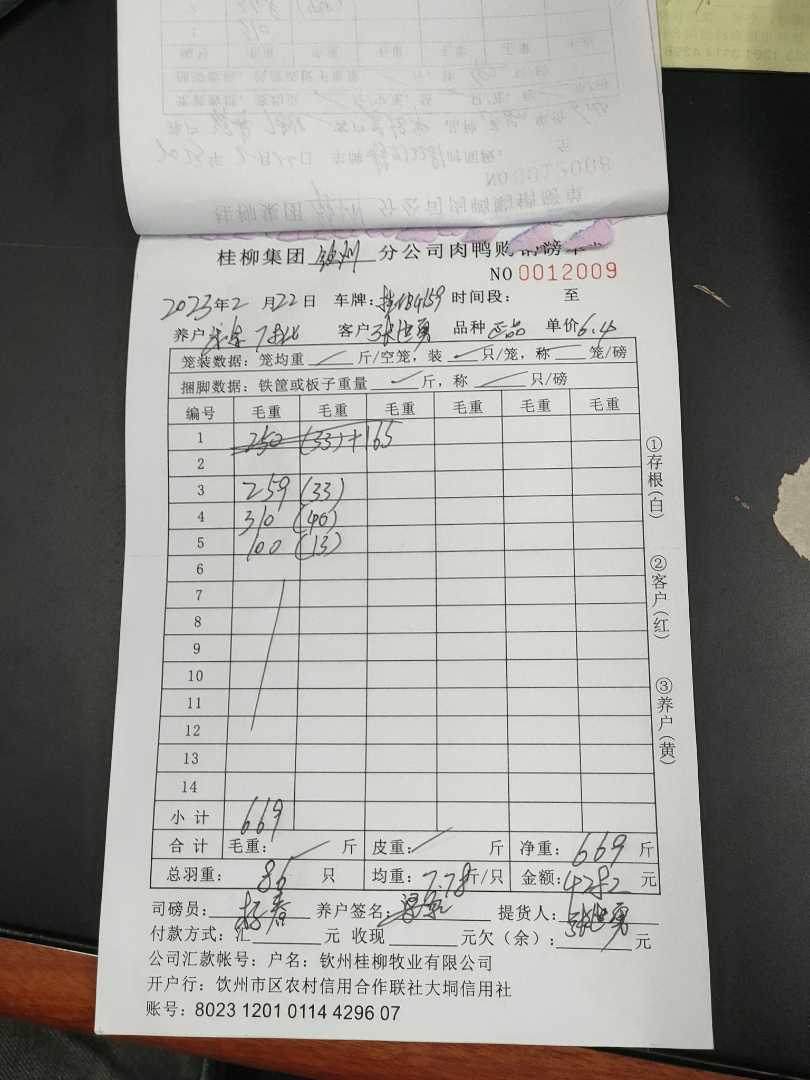 桂柳集团 钦州 分公司肉鸭购销磅单
NO 0012009
2023年2月22日 车牌: 时间段: 至
养户 客户 张世勇 品种 正品 单价6.4
笼装数据: 笼均重 斤/空笼, 装 只/笼, 称 笼/磅
捆脚数据: 铁筐或板子重量 斤, 称 只/磅
编号 毛重 毛重 毛重 毛重 毛重 毛重
1 250 (33)+165
2
3 259 (33)
4 310 (40)
5 100 (13)
6
7
8
9
10
11
12
13
14
小计 669
合计 毛重: 斤 皮重: 斤 净重: 669 斤
总羽重: 86 只 均重: 7.78斤/只 金额: 4282 元
司磅员: 养户签名: 提货人: 张世勇
付款方式: 汇 元 收现 元欠(余): 元
公司汇款帐号: 户名: 钦州桂柳牧业有限公司
开户行: 钦州市区农村信用合作联社大垌信用社
账号: 8023 1201 0114 4296 07
①存根(白)
②客户(红)
③养户(黄)